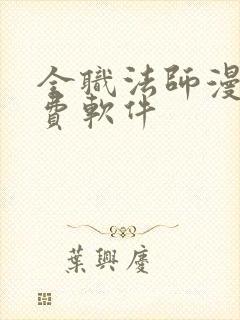 全職法師漫
費軟件
葉興慶